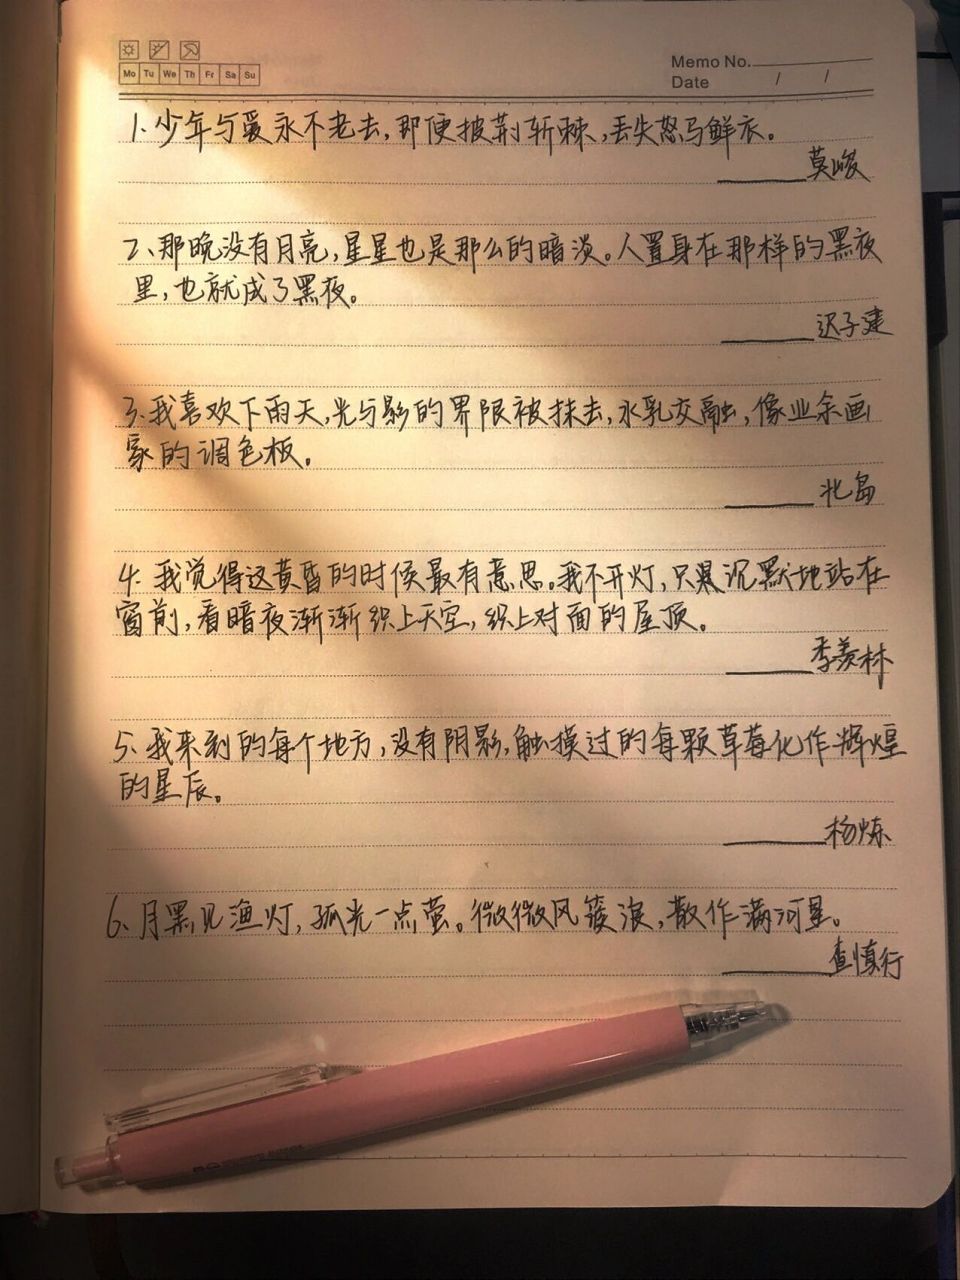 Mo Tu We Th Fr Sa Su
Memo No.
Date / /
1、少年与爱永不老去,即便披荆斩棘,丢失怒马鲜衣。
莫峻
2、那晚没有月亮,星星也是那么的暗淡。人置身在那样的黑夜
里,也就成了黑夜。
迟子建
3、我喜欢下雨天,光与影的界限被抹去,水乳交融,像业余画
家的调色板。
北岛
4、我觉得这黄昏的时候最有意思。我不开灯,只是沉默地站在
窗前,看暗夜渐渐织上天空,织上对面的屋顶。
季羡林
5、我来到的每个地方,没有阴影,触摸过的每颗草莓化作辉煌
的星辰。
杨炼
6、月黑见渔灯,孤光一点萤。微微风簇浪,散作满河星。
查慎行